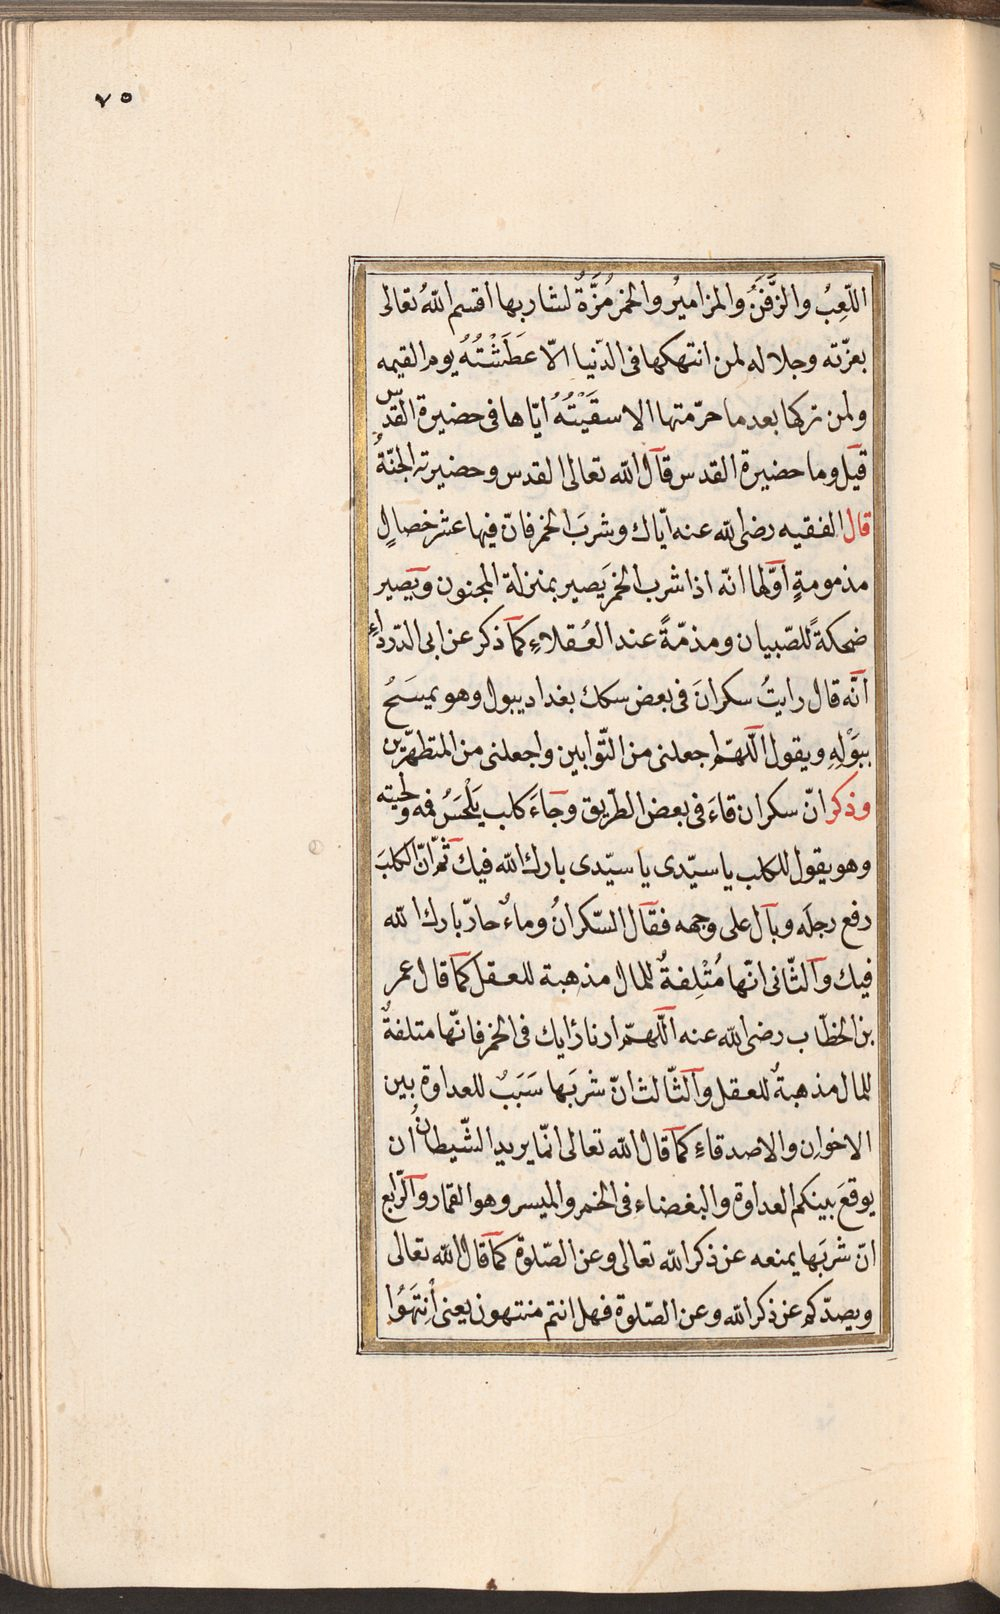 ٧٥
اللّعِبُ والزَّفَنُ والمزاميرُ والخمرُ مُزَّةٌ لشاربها اقسم اللهُ تعالى
بعزّته وجلاله لمن انتهكها فى الدّنيا الّا عَطَشْتُهُ يوم القيمه
ولمن تركها بعد ما حرّمتها الا سقَيْتُهُ ايّاها فى حضيرة القدّس
قيل وما حضيرة القدس قال الله تعالى القدس وحضيرته الجنّةُ
قال الفقيه رضى الله عنه ايّاك وشربَ الخمر فانّ فيها عشر خصالٍ
مذمومةٍ اوّلها انّه اذا شرب الخمر يَصير بمنزلة المجنون ويصير
ضحكةً للصّبيان ومذمّةً عند العُقلاءِ كما ذكر عن ابى الدّرداءِ
انّه قال رايتُ سكرانَ فى بعض سكك بغداد يبول وهو يمسَحُ
ببَوْلِهِ ويقول اللّهمّ اجعلنى من التّوابين واجعلنى من المتطهّرين
وذكر انّ سكران قاءَ فى بعض الطّريق وجاءَ كلب يَلْحَسُ فمه ولحيته
وهو يقول للكلب يا سيّدى يا سيّدى بارك الله فيك ثمّ انّ الكلبَ
رفع رجلَه وبال على وجهه فقال السّكرانُ وماءٌ حارّ بارك الله
فيك والثّانى انّها مُتْلِفةٌ للمال مذهبة للعقل كما قال عمر
بن الخطّاب رضى الله عنه اللّهمّ ارنا رٔايك فى الخمر فانّها متلفةٌ
للمال مذهبةٌ للعقل والثّالث انّ شربَها سَبَبٌ للعداوة بين
الاخوان والاصدقاءِ كما قال الله تعالى انّما يريد الشّيطانُ ان
يوقعَ بينكم العداوة والبغضاء فى الخمر والميسر وهو القمار والرّابع
انّ شربَها يمنعه عن ذكر الله تعالى وعن الصّلوة كما قال الله تعالى
ويصدّكم عن ذكر الله وعن الصّلوة فهل انتم منتهون يعنى أنتَهَوُا